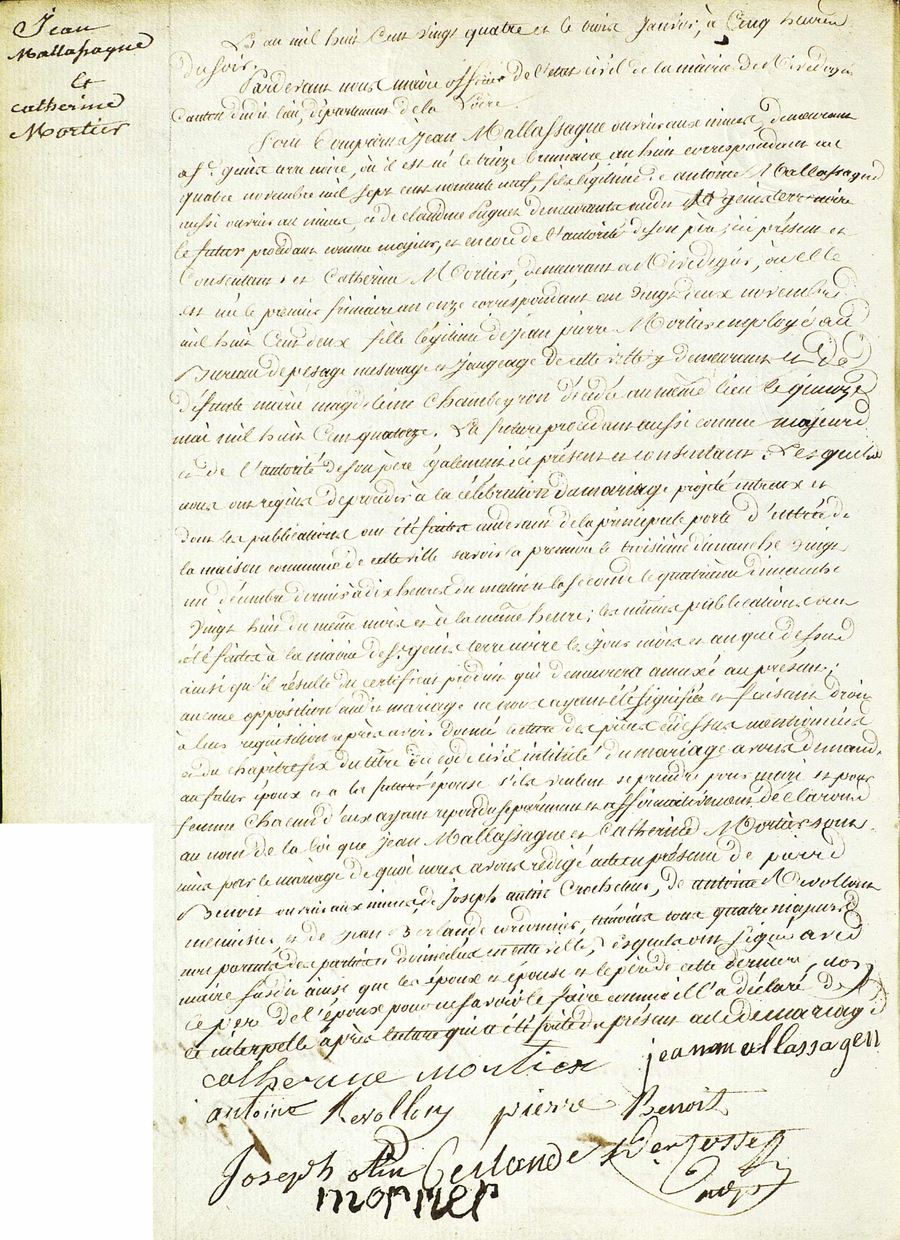 Jean
Mallassagne
Et
Catherine
Mortier
L'an mil huit Cent vingt quatre et le trois Janvier, à Cinq heures
du soir,
Pardevant nous maire officier de l'état civil de la mairie de
Canton dudit lieu, département de la Loire.
Sont comparus Jean Mallassagne ouvrier aux mines, demeurant
à St. genis terre noire, où il est né le treize brumaire an huit correspondant au
quatre novembre mil sept cent nonante neuf, fils légitime de antoine Mallassagne
aussi ouvrier au mines, et de claudine demeurants audit St genis terre-noire
le futur procédant comme majeur, et encore de l'autorité de son père, ici présent et
Consentant; et Catherine Mortier, demeurant à, où elle
est née le premier frimaire an onze correspondant au vingt deux novembre
mil huit Cent deux fille légitime de jean pierre Mortier employé au
Bureau de pesage mesurage et jaugeage de cette ville y demeurant et de
défunte marie magdeleine Chambeyron décédée au même lieu le quinze
mai mil huit Cent quatorze. La future procédant aussi comme majeure
et de l'autorité de son père également ici présent et consentant. Lesquels
nous ont requis de procéder à la célébration du mariage projeté entreux et
dont les publications ont été faites audevant de la principale porte d'entrée de
la maison commune de cette ville savoir la première le troisième dimanche vingt
un décembre dernier à dix heures du matin et la seconde le quatrième dimanche
vingt huit du même mois et à la même heure; les mêmes publications ont
été faites à la mairie de St. genis terre noire les jours mois et an que dessus
ainsi qu'il résulte du certificat produit qui demeurera annexé au présent;
aucune opposition audit mariage ne nous ayant été signifiée et faisant droit
à leur requisition après avoir donné lecture des pièces ci dessus mentionnées
et du chapitre six du titre du code civil intitulé du mariage avons demandé
au futur époux et à la future épouse s'ils veulent se prendre pour mari et pour
femme Chacun d'eux ayant répondu séparément et affirmativement déclarons
au nom de la loi que jean Mallassagne et Catherine Mortier sont
unis par le mariage de quoi nous avons rédigé acte en présence de pierre
Benoit ouvrier aux mines, de Joseph Crocheteur, de antoine Revollon
menuisier, et de jean Berlande cordonnier, témoins tous quatre majeurs
non parents des parties domiciliés en cette ville, Lesquels ont signé avec
maire susdit ainsi que les époux et épouse et le père de cette dernière, non
le père de l'époux pour ne savoir le faire comme il l'a déclaré de
ce interpellé après lecture qui a été faite du présent acte de mariage
catherine mortier jeanmallassagen
antoine Revollon pierre Benoit
Joseph Berlande
mortier